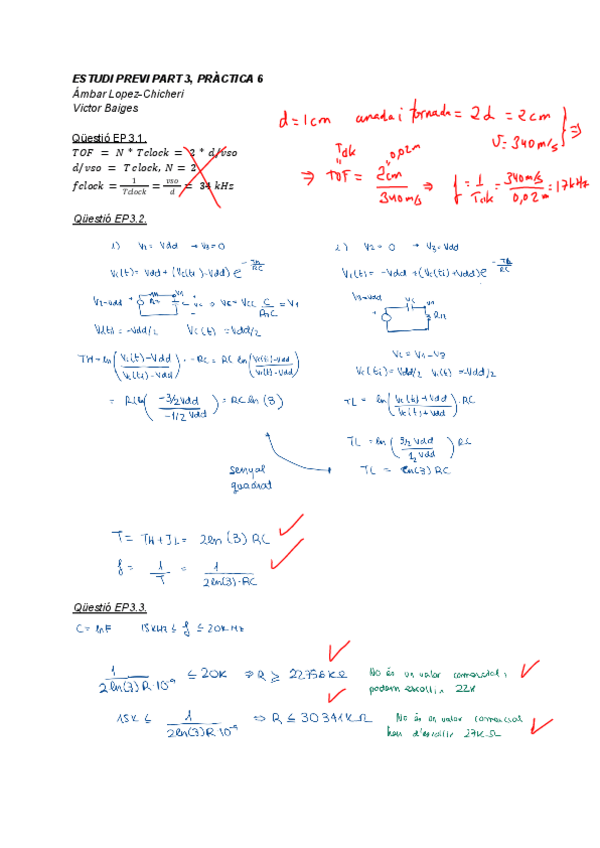 ESTUDI PREVI PART 3, PRÀCTICA 6
Àmbar Lopez-Chicheri
Víctor Baiges
d = 1cm anada i tornada = 2d = 2cm
V = 340m/s } ⇒
Qüestió EP3.1.
TOF = N * Tclock = 2 * d/vso
d/vso = Tclock, N = 2
fclock = 1/Tclock = vso/d = 34 kHz
Tclk 0,02m
⇒ TOF = 2cm/340m/s ⇒ f = 1/Tclk = 340m/s/0,02m = 17kHz
Qüestió EP3.2.
1) V2 = Vdd → V3 = 0
Vc(t) = Vdd + (Vc(ti) - Vdd) e^(-TH/RC)
Vc(ti) = -Vdd/2 Vc(t) = Vdd/2
TH = ln((Vc(t) - Vdd)/(Vc(ti) - Vdd)) · -RC = RC ln((Vc(ti) - Vdd)/(Vc(t) - Vdd))
= RC ln((-3/2 Vdd)/(-1/2 Vdd)) = RC ln(3)
2) V2 = 0 → V3 = Vdd
Vc(t) = -Vdd + (Vc(ti) + Vdd) e^(-TL/RC)
V3 = Vdd
Vc = V1 - V3
Vc(ti) = Vdd/2 Vc(t) = -Vdd/2
TL = ln((Vc(ti) + Vdd)/(Vc(t) + Vdd)) · RC
TL = ln((3/2 Vdd)/(1/2 Vdd)) RC
TL = ln(3) RC
senyal
quadrat
T = TH + TL = 2ln(3) RC
f = 1/T = 1/(2ln(3)·RC)
Qüestió EP3.3.
C = 1nF 15kHz ≤ f ≤ 20kHz
1/(2ln(3)R·10^-9) ≤ 20K ⇒ R ≥ 22756KΩ No és un valor comercial,
podem escollir 22K
15K ≤ 1/(2ln(3)R·10^-9) ⇒ R ≤ 30341KΩ No és un valor comercial
hem d'escollir 27KΩ